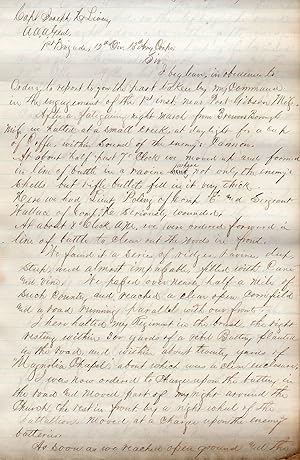 Capt Joseph H. Lion,
A.A.A. Genl.
1st Brigade, 12th Div 13th Army Corps
Sir
I beg leave, in obedience to
Orders, to report to you the part taken by my Command
in the engagement of the 1st inst near Port Gibson Miss.
After a fatiguing night march from
Miss, we halted at a small creek, at daylight for a cup
of Coffee within sound of the enemy's Cannon.
At about half past 7 o'clock we moved up and formed
in line of battle in a ravine where not only the enemy's
Shells but rifle bullets fell in it very thick.
Here we had Lieut Poling of Comp. C and Sergeant
Wallace of Comp. K seriously wounded.
At about 8 o'clock A.M. we were ordered forward in
line of battle to clear out the woods in front.
We found it a series of ridges & ravines, deep,
steep, and almost impassable, filled with Cane
and Vine. We passed over nearly half a mile of
such Country, and reached a clear open Cornfield
and a road running parallel with our front.
I here halted my Regiment in the brush, the right
resting within 200 yards of a rebel Battery planted
in the road, and within about twenty yards of
Magnolia Chapel, about which was a clear enclosure.
I was now ordered to Charge upon the battery in
the road and moved part of my right around the
Church, the rest in front by a right wheel of the
battalion & moved at a Charge upon the enemy's
batteries.
As soon as we reached open ground and the